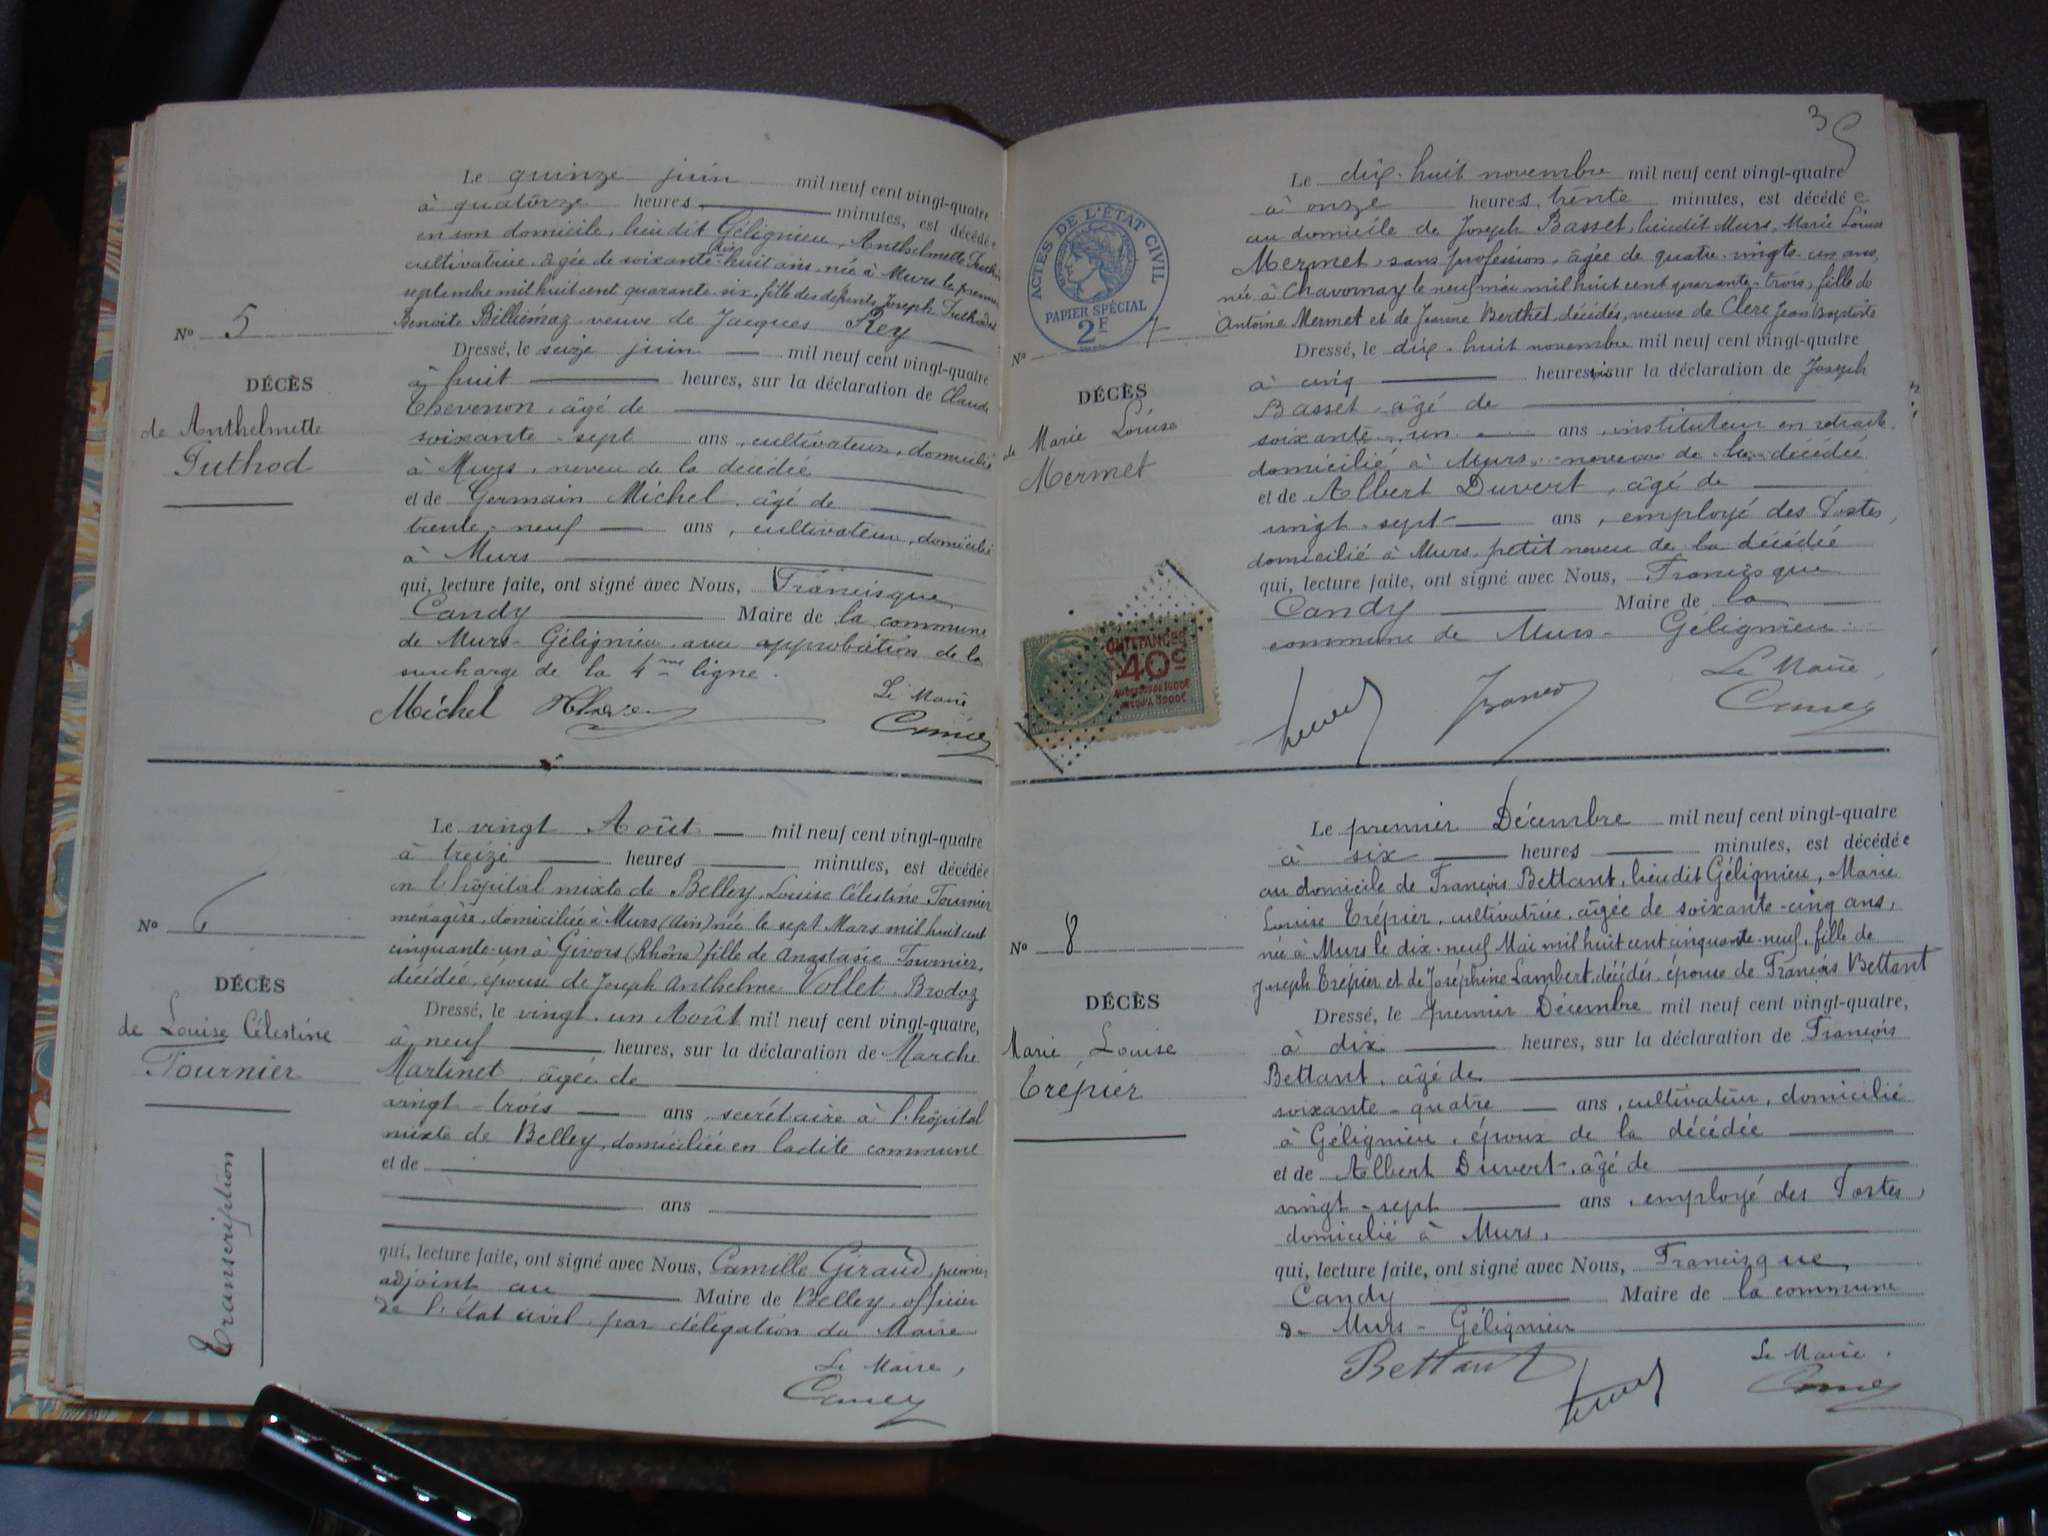 Le quinze juin mil neuf cent vingt-quatre
à quatorze heures minutes, est décédée
en son domicile, lieu dit Gélignieu, Anthelmette Puthod
cultivatrice, âgée de soixante-dix-huit ans, née à Murs le premier
septembre mil huit cent quarante-six, fille des défunts Joseph Puthod et
Benoîte Billiemaz veuve de Jacques Rey
No 5
DÉCÈS
de Anthelmette
Puthod
Dressé, le seize juin mil neuf cent vingt-quatre
à huit heures, sur la déclaration de Claude
Thevenon, âgé de
soixante-sept ans, cultivateur, domicilié
à Murs, neveu de la décédée
et de Germain Michel, âgé de
trente-neuf ans, cultivateur, domicilié
à Murs
qui, lecture faite, ont signé avec Nous, Francisque
Candy Maire de la commune
de Murs-Gélignieu avec approbation de la
surcharge de la 4me ligne.
Michel
Le Maire
Le vingt Août mil neuf cent vingt-quatre
à treize heures minutes, est décédée
en l'hôpital mixte de Belley, Louise Célestine Fournier
ménagère, domiciliée à Murs (Ain) née le sept Mars mil huit cent
cinquante-un à Givors (Rhône) fille de Anastasie Fournier,
décédée, épouse de Joseph Anthelme Vollet-Brodaz
No 6
DÉCÈS
de Louise Célestine
Fournier
Transcription
Dressé, le vingt-un Août mil neuf cent vingt-quatre,
à neuf heures, sur la déclaration de Marche
Martinet, âgée de
vingt-trois ans, secrétaire à l'hôpital
mixte de Belley, domiciliée en ladite commune
et de
ans
qui, lecture faite, ont signé avec Nous, Camille Giraud, premier
adjoint au Maire de Belley, officier
de l'état civil par délégation du Maire
Le Maire,
35
ACTES DE L'ÉTAT CIVIL
PAPIER SPÉCIAL
2F
Le dix-huit novembre mil neuf cent vingt-quatre
à onze heures trente minutes, est décédée
au domicile de Joseph Basset, lieudit Murs, Marie Louise
Mermet, sans profession, âgée de quatre-vingt-un ans,
née à Chavornay le neuf mai mil huit cent quarante-trois, fille de
Antoine Mermet et de Jeanne Berthet, décédés, veuve de Clerc Jean Baptiste
No 7
DÉCÈS
de Marie Louise
Mermet
Dressé, le dix-huit novembre mil neuf cent vingt-quatre
à cinq heures sur la déclaration de Joseph
Basset, âgé de
soixante-un ans, instituteur en retraite,
domicilié à Murs, neveu de la décédée
et de Albert Duvert, âgé de
vingt-sept ans, employé des Postes,
domicilié à Murs, petit neveu de la décédée
qui, lecture faite, ont signé avec Nous, Francisque
Candy Maire de la
commune de Murs-Gélignieu
QUITTANCES
40c
Le Maire,
Le premier Décembre mil neuf cent vingt-quatre
à six heures minutes, est décédée
au domicile de François Bettant, lieudit Gélignieu, Marie
Louise Trépier, cultivatrice, âgée de soixante-cinq ans,
née à Murs le dix-neuf Mai mil huit cent cinquante-neuf, fille de
Joseph Trépier et de Joséphine Lambert, décédés, épouse de François Bettant
No 8
DÉCÈS
Marie Louise
Trépier
Dressé, le premier Décembre mil neuf cent vingt-quatre,
à dix heures, sur la déclaration de François
Bettant, âgé de
soixante-quatre ans, cultivateur, domicilié
à Gélignieu, époux de la décédée
et de Albert Duvert, âgé de
vingt-sept ans, employé des Postes,
domicilié à Murs,
qui, lecture faite, ont signé avec Nous, Francisque
Candy Maire de la commune
de Murs-Gélignieu
Bettant
Le Maire,